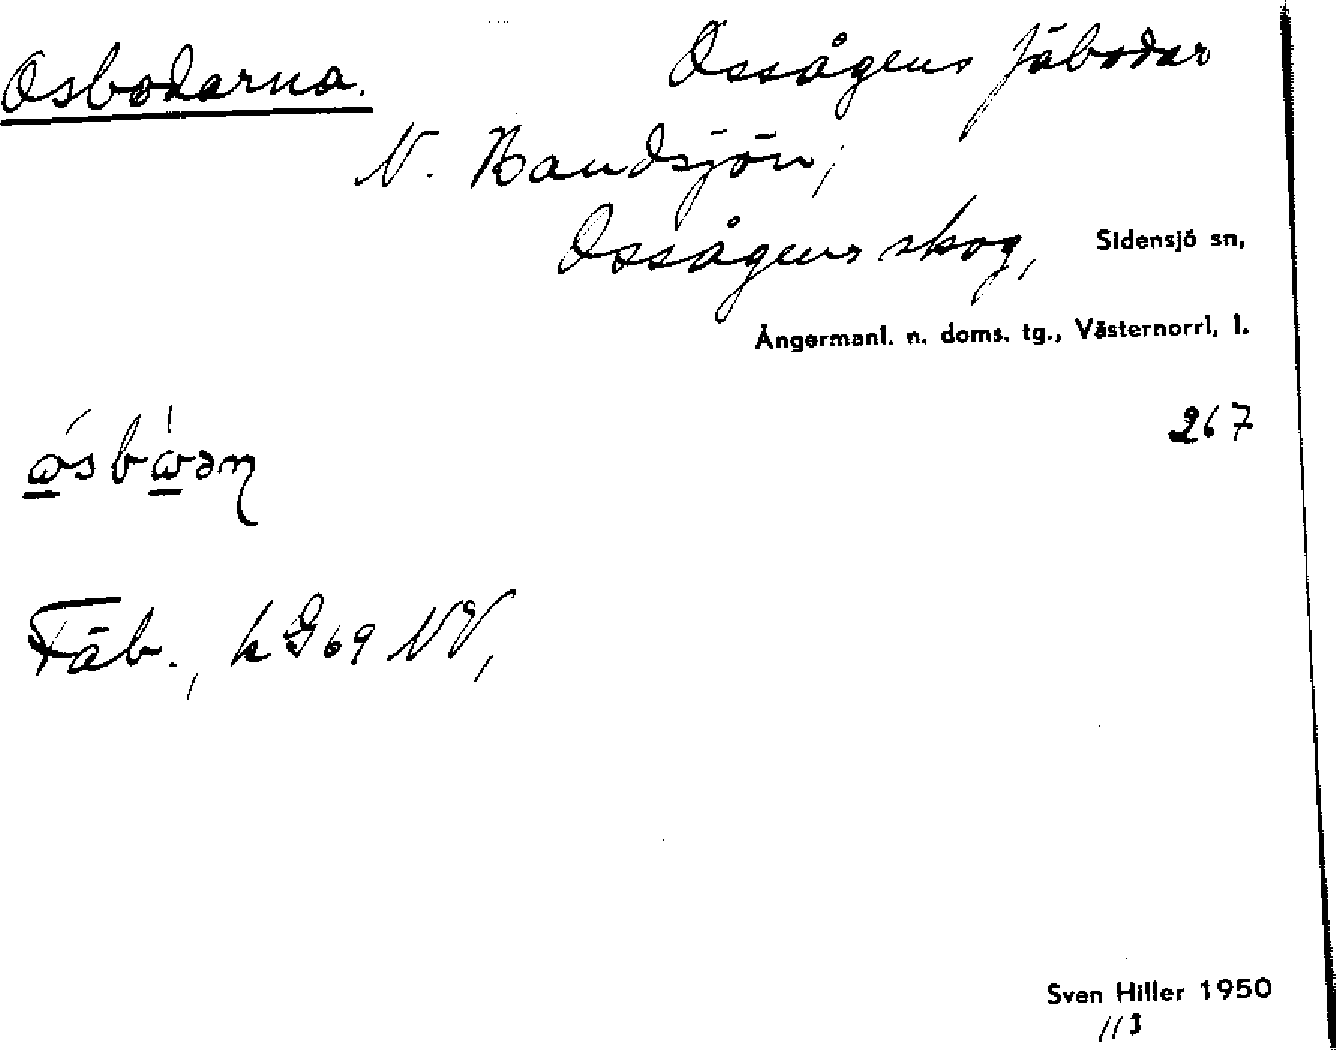 Osbodarna. Ossågens fäbodar
N. Randsjön,
Ossågens skog, Sidensjö sn,
Ångermanl. n. doms. tg., Västernorrl. l.
267
ώsbὼəɳ
Fäb., k G 69 NV,
Sven Hiller 1950